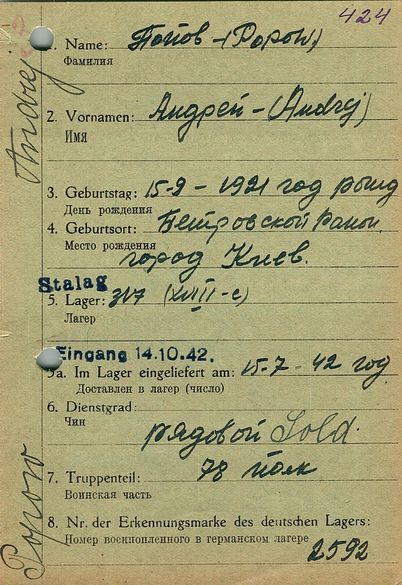 424
1. Name: Попов - (Popow)
Фамилия
2. Vornamen: Андрей - (Andrej)
Имя
3. Geburtstag: 15-9 - 1921 год рожд
День рождения
4. Geburtsort: Петровской Район.
Место рождения
город Киев.
Stalag
5. Lager: 317 (XVIII-c)
Лагер
Eingang 14.10.42.
5a. Im Lager eingeliefert am: 15-7 - 42 год.
Доставлен в лагер (число)
6. Dienstgrad:
Чин
рядовой Sold.
7. Truppenteil: 78 полк
Воинская часть
8. Nr. der Erkennungsmarke des deutschen Lagers:
Номер военнопленного в германском лагере
2592
Popow
Andrej